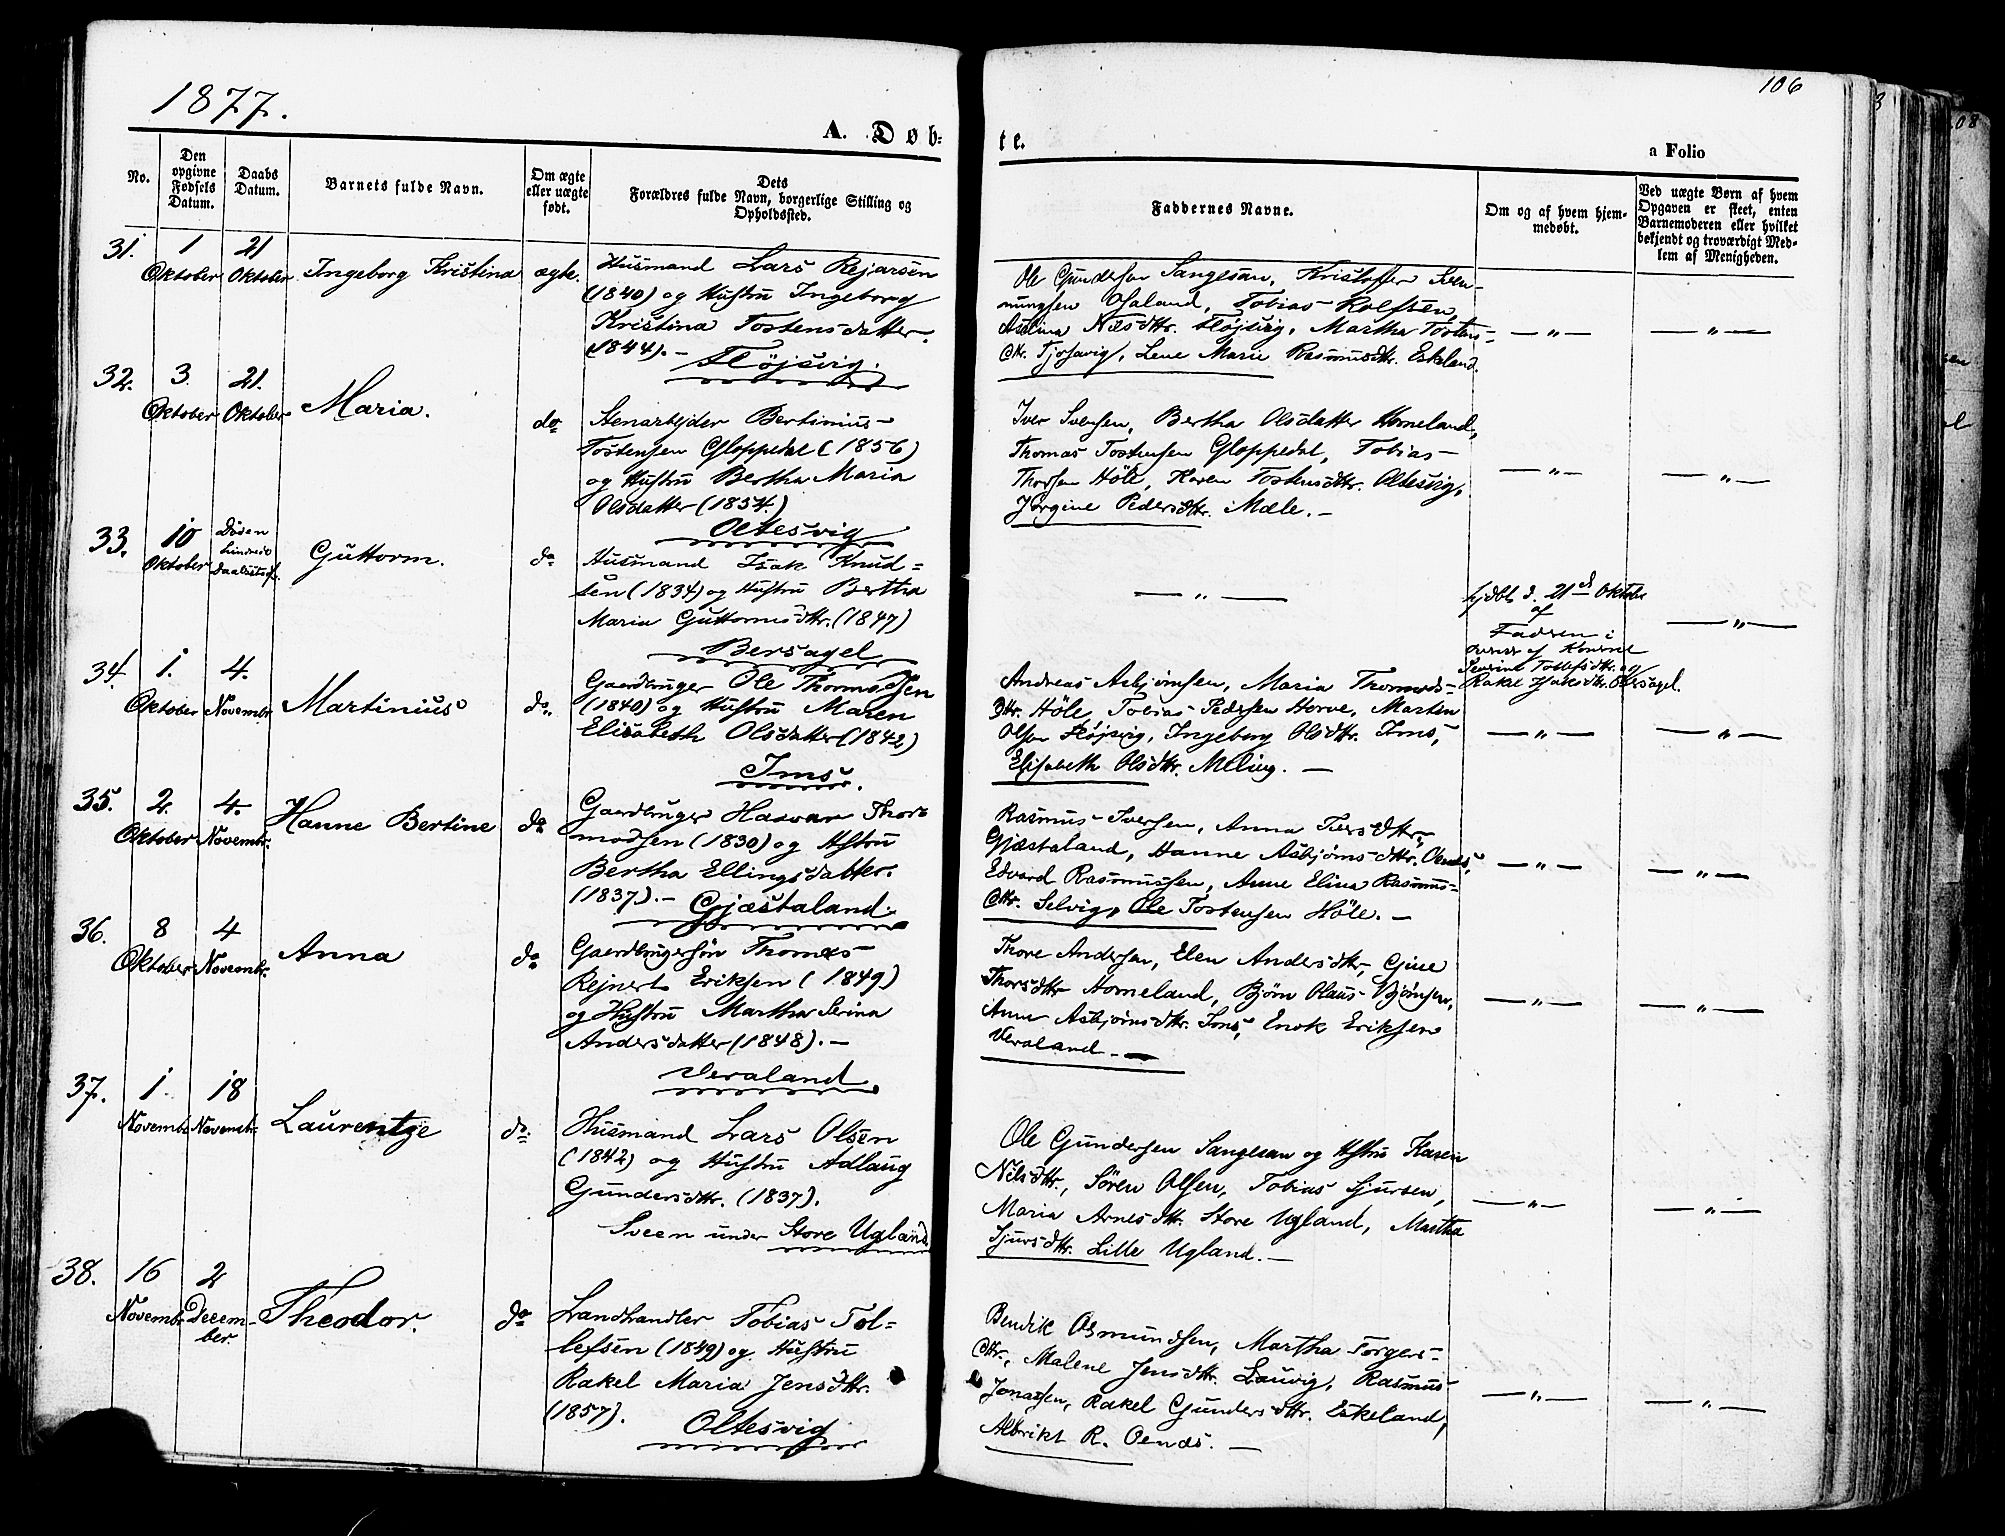 1877.
106
A. Døb-
te.
a Folio
No.
Den opgivne Fødsels Datum.
Daabs Datum.
Barnets fulde Navn.
Om ægte eller uægte født.
Dets Forældres fulde Navn, borgerlige Stilling og Opholdssted.
Faddernes Navne.
Om og af hvem hjemmedøbt.
Ved uægte Børn af hvem Opgaven er skeet, enten Barnemoderen eller hvilket bekjendt og troværdigt Medlem af Menigheden.
31. 1 Oktober 21 Oktober Ingeborg Kristina ægte.
Husmand Lars Rejarsen
(1840) og Hustru Ingeborg
Kristina Tostensdatter.
(1844).- Fløjsvig.
Ole Gundersen Sangesan, Kristoffer Svenungsen
Osaland, Tobias Rolfsen,
Nilsdttr. Fløjsvig, Martha Tostens-
dttr. Tjossavig, Lene Marie Rasmusdttr. Eskeland.
— " — — " —
32. 3. Oktober 21. Oktober Maria. do
Stenarbejder Bertinius
Tostensen Gloppedal (1856)
og Hustru Bertha Maria
Olsdatter (1854.)
Oltesvig
Iver Svensen, Bertha Olsdatter Homeland,
Thomas Tostensen Gloppedal, Tobias
Thorsen Höle, Karen Tostensdttr. Oltesvig,
Jørgine Pedersdttr. Mæle. -
— " — — " —
33. 10 Oktober Døden Guttorm. do
Husmand Isak Knud-
sen (1834) og Hustru Bertha
Maria Guttormsdttr. (1847)
Bersagel
— " —
hjdbt d. 21de Oktobr
af
Faderen i
af Konerne
Serine Tollefsdttr. og
Rakel Isaksdttr. Bersagel.
— " —
34. 1. Oktober 4. Novembr. Martinius do.
Gaardbruger Ole Thomassen
(1840) og Hustru Maren
Elisabeth Olsdatter (1842)
Ims.
Andreas Asbjørnsen, Maria Thomas-
Dttr. Höle, Tobias Pedersen Horve, Marten
Olsen Fløjsvig, Ingeborg Olsdttr. Ims,
Elisabeth Olsdttr. Meling. —
— " — — " —
35. 2. Oktober 4. Novembr. Hanne Bertine do
Gaardbruger Hasvar Thor-
modsen (1830) og Hstru
Bertha Ellingsdatter.
(1837).- Gjæstaland.
Rasmus Iversen, Anna Iversdttr.
Gjæstaland, Hanne Asbjørnsdttr. Oends,
Edvard Rasmussen, Anne Elina Rasmus-
dttr. Selvig, Ole Tostensen Höle. -
— " — — " —
36. 8 Oktober 4 Novembr. Anna do
Gaardbrugersøn Thomas
Rejnert Eriksen (1849)
og Hustru Martha Serina
Andersdatter (1848). -
Veraland.
Thore Andersen, Elen Andersdttr, Gine
Thorsdttr Homeland, Bjørn Olaus Bjørnsen,
Anne Asbjørnsdttr. Ims, Enok Eriksen
Veraland. -
— " — — " —
37. 1. Novembr. 18 Novembr. Laurentze do.
Husmand Lars Olsen
(1842) og Hustru Adlaug
Gundersdttr. (1837).
Sveen under Store Ugland.
Ole Gundersen Sangesan og Hstru Karen
Nilsdttr., Sören Olsen, Tobias Sjursen,
Maria Arnesdttr. Store Ugland, Martha
Sjursdttr. Lille Ugland. -
— " — — " —
38. 16 Novembr. 2 December. Theodor. do
Landhandler Tobias Tol-
lefsen (1849) og Hustru
Rakel Maria Jensdttr.
(1857). Oltesvig
Bendik Osmundsen, Martha Torgers-
dttr., Malene Jensdttr. Lauvig, Rasmus
Jonassen, Rakel Gundersdttr. Eskeland,
Albrikt R. Oends. —
— " — — " —